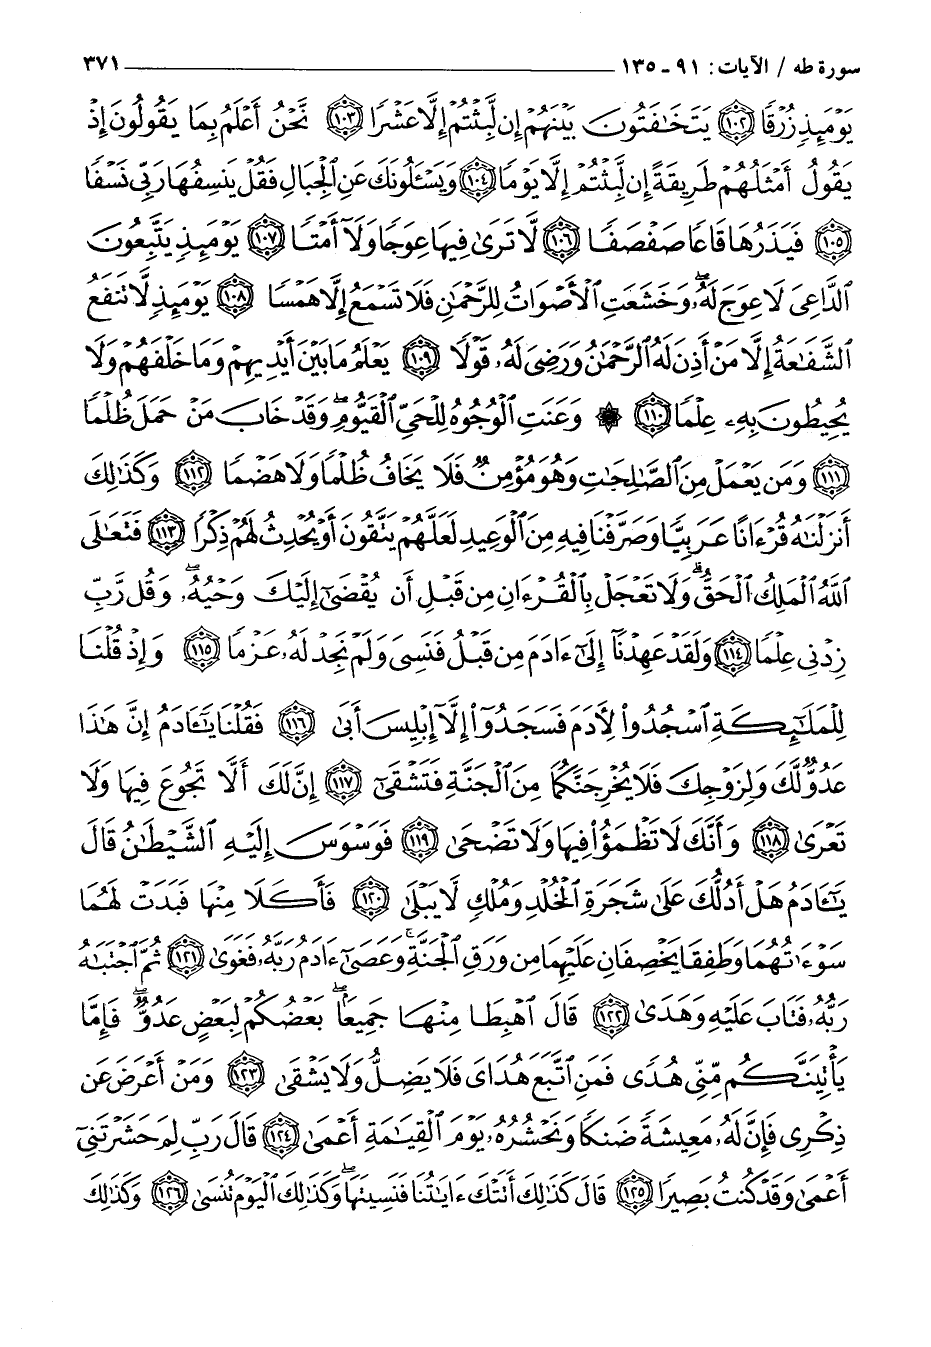 سورة طه / الآيات : ٩١ - ١٣٥ ٣٧١
يَوْمَئِذٍ زُرْقًا ﴿١٠٢﴾ يَتَخَـٰفَتُونَ بَيْنَهُمْ إِن لَّبِثْتُمْ إِلَّا عَشْرًا ﴿١٠٣﴾ نَّحْنُ أَعْلَمُ بِمَا يَقُولُونَ إِذْ
يَقُولُ أَمْثَلُهُمْ طَرِيقَةً إِن لَّبِثْتُمْ إِلَّا يَوْمًا ﴿١٠٤﴾ وَيَسْـَٔلُونَكَ عَنِ ٱلْجِبَالِ فَقُلْ يَنسِفُهَا رَبِّى نَسْفًا
﴿١٠٥﴾ فَيَذَرُهَا قَاعًا صَفْصَفًا ﴿١٠٦﴾ لَّا تَرَىٰ فِيهَا عِوَجًا وَلَآ أَمْتًا ﴿١٠٧﴾ يَوْمَئِذٍ يَتَّبِعُونَ
ٱلدَّاعِىَ لَا عِوَجَ لَهُۥ ۖ وَخَشَعَتِ ٱلْأَصْوَاتُ لِلرَّحْمَـٰنِ فَلَا تَسْمَعُ إِلَّا هَمْسًا ﴿١٠٨﴾ يَوْمَئِذٍ لَّا تَنفَعُ
ٱلشَّفَـٰعَةُ إِلَّا مَنْ أَذِنَ لَهُ ٱلرَّحْمَـٰنُ وَرَضِىَ لَهُۥ قَوْلًا ﴿١٠٩﴾ يَعْلَمُ مَا بَيْنَ أَيْدِيهِمْ وَمَا خَلْفَهُمْ وَلَا
يُحِيطُونَ بِهِۦ عِلْمًا ﴿١١٠﴾ ۞ وَعَنَتِ ٱلْوُجُوهُ لِلْحَىِّ ٱلْقَيُّومِ ۖ وَقَدْ خَابَ مَنْ حَمَلَ ظُلْمًا
﴿١١١﴾ وَمَن يَعْمَلْ مِنَ ٱلصَّـٰلِحَـٰتِ وَهُوَ مُؤْمِنٌ فَلَا يَخَافُ ظُلْمًا وَلَا هَضْمًا ﴿١١٢﴾ وَكَذَٰلِكَ
أَنزَلْنَـٰهُ قُرْءَانًا عَرَبِيًّا وَصَرَّفْنَا فِيهِ مِنَ ٱلْوَعِيدِ لَعَلَّهُمْ يَتَّقُونَ أَوْ يُحْدِثُ لَهُمْ ذِكْرًا ﴿١١٣﴾ فَتَعَـٰلَى
ٱللَّهُ ٱلْمَلِكُ ٱلْحَقُّ ۗ وَلَا تَعْجَلْ بِٱلْقُرْءَانِ مِن قَبْلِ أَن يُقْضَىٰٓ إِلَيْكَ وَحْيُهُۥ ۖ وَقُل رَّبِّ
زِدْنِى عِلْمًا ﴿١١٤﴾ وَلَقَدْ عَهِدْنَآ إِلَىٰٓ ءَادَمَ مِن قَبْلُ فَنَسِىَ وَلَمْ نَجِدْ لَهُۥ عَزْمًا ﴿١١٥﴾ وَإِذْ قُلْنَا
لِلْمَلَـٰٓئِكَةِ ٱسْجُدُوا۟ لِـَٔادَمَ فَسَجَدُوٓا۟ إِلَّآ إِبْلِيسَ أَبَىٰ ﴿١١٦﴾ فَقُلْنَا يَـٰٓـَٔادَمُ إِنَّ هَـٰذَا
عَدُوٌّ لَّكَ وَلِزَوْجِكَ فَلَا يُخْرِجَنَّكُمَا مِنَ ٱلْجَنَّةِ فَتَشْقَىٰٓ ﴿١١٧﴾ إِنَّ لَكَ أَلَّا تَجُوعَ فِيهَا وَلَا
تَعْرَىٰ ﴿١١٨﴾ وَأَنَّكَ لَا تَظْمَؤُا۟ فِيهَا وَلَا تَضْحَىٰ ﴿١١٩﴾ فَوَسْوَسَ إِلَيْهِ ٱلشَّيْطَـٰنُ قَالَ
يَـٰٓـَٔادَمُ هَلْ أَدُلُّكَ عَلَىٰ شَجَرَةِ ٱلْخُلْدِ وَمُلْكٍ لَّا يَبْلَىٰ ﴿١٢٠﴾ فَأَكَلَا مِنْهَا فَبَدَتْ لَهُمَا
سَوْءَٰتُهُمَا وَطَفِقَا يَخْصِفَانِ عَلَيْهِمَا مِن وَرَقِ ٱلْجَنَّةِ ۚ وَعَصَىٰٓ ءَادَمُ رَبَّهُۥ فَغَوَىٰ ﴿١٢١﴾ ثُمَّ ٱجْتَبَـٰهُ
رَبُّهُۥ فَتَابَ عَلَيْهِ وَهَدَىٰ ﴿١٢٢﴾ قَالَ ٱهْبِطَا مِنْهَا جَمِيعًۢا ۖ بَعْضُكُمْ لِبَعْضٍ عَدُوٌّ ۖ فَإِمَّا
يَأْتِيَنَّكُم مِّنِّى هُدًى فَمَنِ ٱتَّبَعَ هُدَاىَ فَلَا يَضِلُّ وَلَا يَشْقَىٰ ﴿١٢٣﴾ وَمَنْ أَعْرَضَ عَن
ذِكْرِى فَإِنَّ لَهُۥ مَعِيشَةً ضَنكًا وَنَحْشُرُهُۥ يَوْمَ ٱلْقِيَـٰمَةِ أَعْمَىٰ ﴿١٢٤﴾ قَالَ رَبِّ لِمَ حَشَرْتَنِىٓ
أَعْمَىٰ وَقَدْ كُنتُ بَصِيرًا ﴿١٢٥﴾ قَالَ كَذَٰلِكَ أَتَتْكَ ءَايَـٰتُنَا فَنَسِيتَهَا ۖ وَكَذَٰلِكَ ٱلْيَوْمَ تُنسَىٰ ﴿١٢٦﴾ وَكَذَٰلِكَ